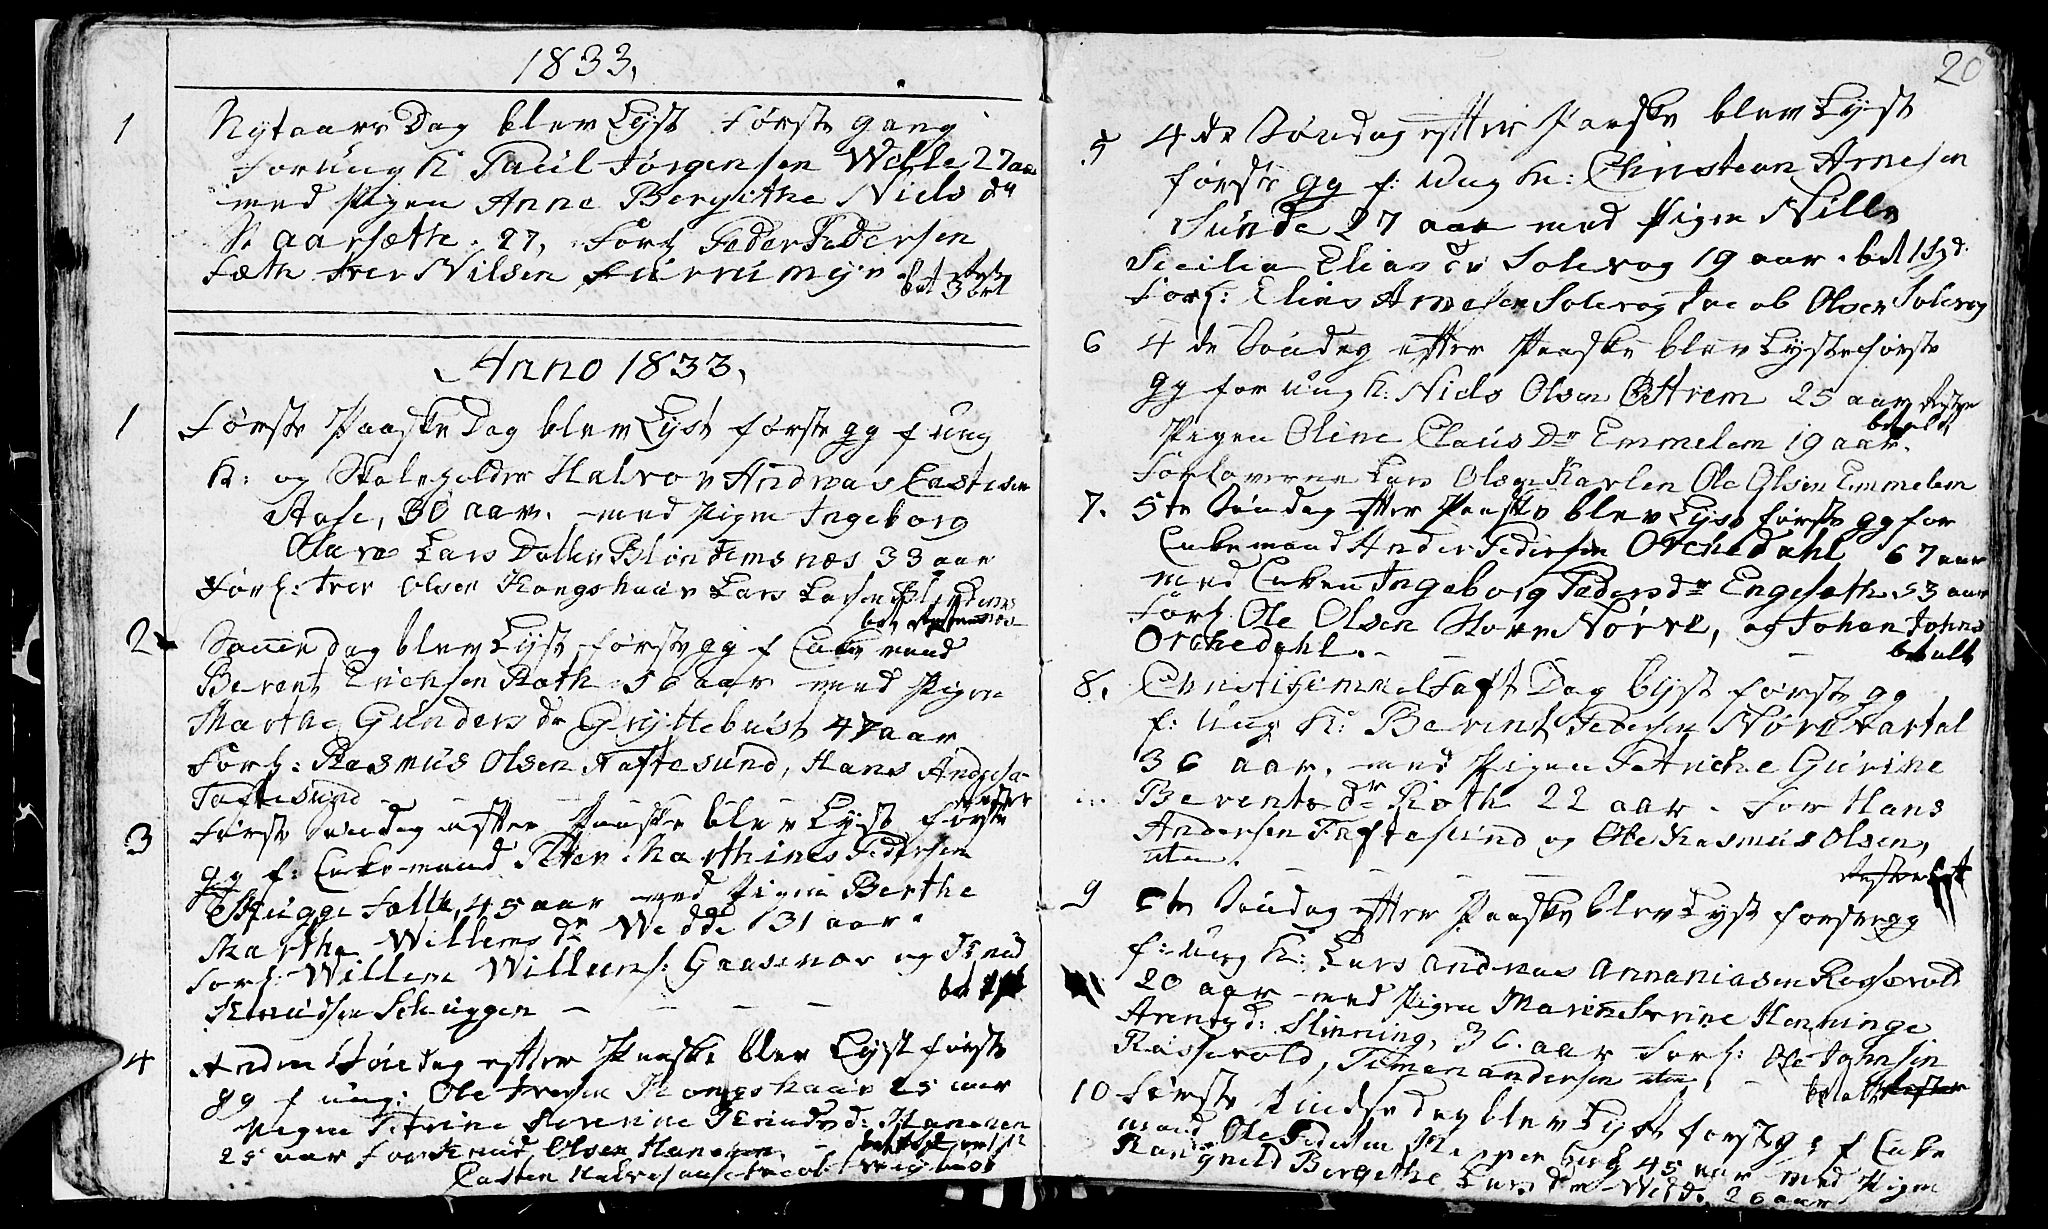 1833,
1 Nytaars Dag blev Lyst Første gang
for ung K Paul Jørgensen Wille 27 aar
med Pigen Anne Bergithe Niels dr
Aarsæth. 27, Forl Peder Pedersen
Sæth Iver Nilsen Furrumyr
bet 3 ort
Anno 1833,
1 Første Paaske Dag blev Lyst første gg f ung
K: og Skoleholder Halvor Andreas Castesen
Aase, 30 aar. med Pigen Ingeborg
Olave Lars Datter Blindemsnæs 33 aar
Forl: Iver Olsen Kongshaav Lars Larsen Blindems
2 Samme dag blev Lyst første gg f Enke mand
Berent Erichsen Roth 56 aar med Pigen
Marthe Gunders dr Gryttebust 47 aar
Forl: Rasmus Olsen Taftesund, Hans Andersen
Taftesund
rester
3 første Søndag efter Paaske blev Lyst første
gg f: Enkemand Peter Marthines Pedersen
Skugge 45 aar med Pigen Berthe
Marthe Willems dr Wedde 31 aar.
Forl: Willem Willums: Gaasenor og Knud
Knudsen Schuggen
4 Anden Søndag efter Paaske blev Lyst første
gg f ung: Ole Iversen Kongshaav 25 aar
Pigen Petrine Severine Knuds d: Hanemen
25 aar For Knud Olsen Hanemen
Casten Halvors
20
5 4de Søndag efter Paaske blev Lyst
første gg f: Ung K: Christian Arnesen
Sunde 27 aar med Pigen Nille
Sicilia Elias dr Solevog 19 aar. bet 1 Spd:
Forl: Elias Arnesen Solevog Jacob Olsen Solevog
6 4de Søndag efter Paaske blev Lyst første
gg for Ung K: Niels Olsen Østrem 25 aar rester
betalt
Pigen Oline Claus Dr Emmelem 19 aar.
Forloverne Lars Olsen Karlen Ole Olsen Emmelem
7. 5te Søndag efter Paaske blev Lyst første gg for
Enkemand Ander Pedersen Orchedahl 67 aar
med Enken Ingeborg Peders dr Engesæth 53 aar
Forl Ole Olsen Norve, og Johan Johns
Orchedahl.
betalt
8. Christihimmelfast Dag Lyst første gg
f: Ung K: Berent Pedersen Nørve
36 aar. med Pigen Petricke Gurine
Berents dr Roth 22 aar. For Hans
Andersen Taftesund og Ole Rasmus Olsen,
rester
9 6te Søndag efter Paaske blev Lyst første gg
f: Ung K: Lars Andreas Annaniasen Rosevold
20 aar med Pigen Henninge
Arents d: Slinning, 36. aar Forl: Ole Johnsen
Rossevold, Timan Andersen
betalt rester
10 første Pindse dag blev Lyst første g: f Enke
mand Ole Pedersen 45 aar med Pigen
Rangnild Bergethe Lars dr Wedde 26 aar